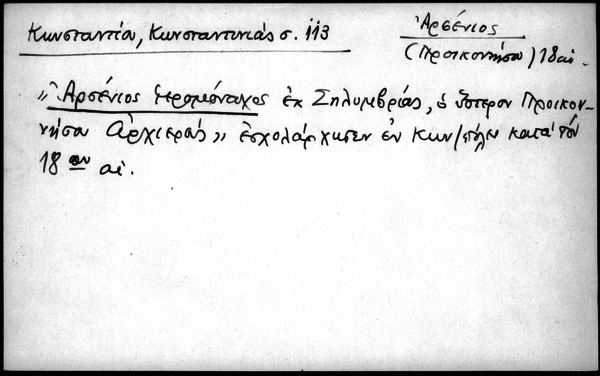 Κωνσταντία, Κωνσταντινιάς σ. 113
Ἀρσένιος
(Προικονήσου) 18 αι.
"Ἀρσένιος Ἱερομόναχος ἐκ Σηλυμβρίας, ὁ ὕστερον Προικον-
νήσου Ἀρχιερεύς" ἐσχολάρχησεν ἐν Κων/πόλει κατά τόν
18ον αἰ.